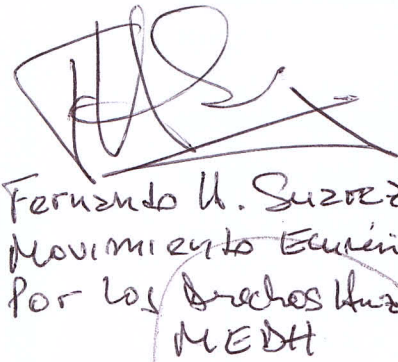 Fernando U. Suarez
Movimiento Ecumén
Por Los Derechos Huma
MEDH